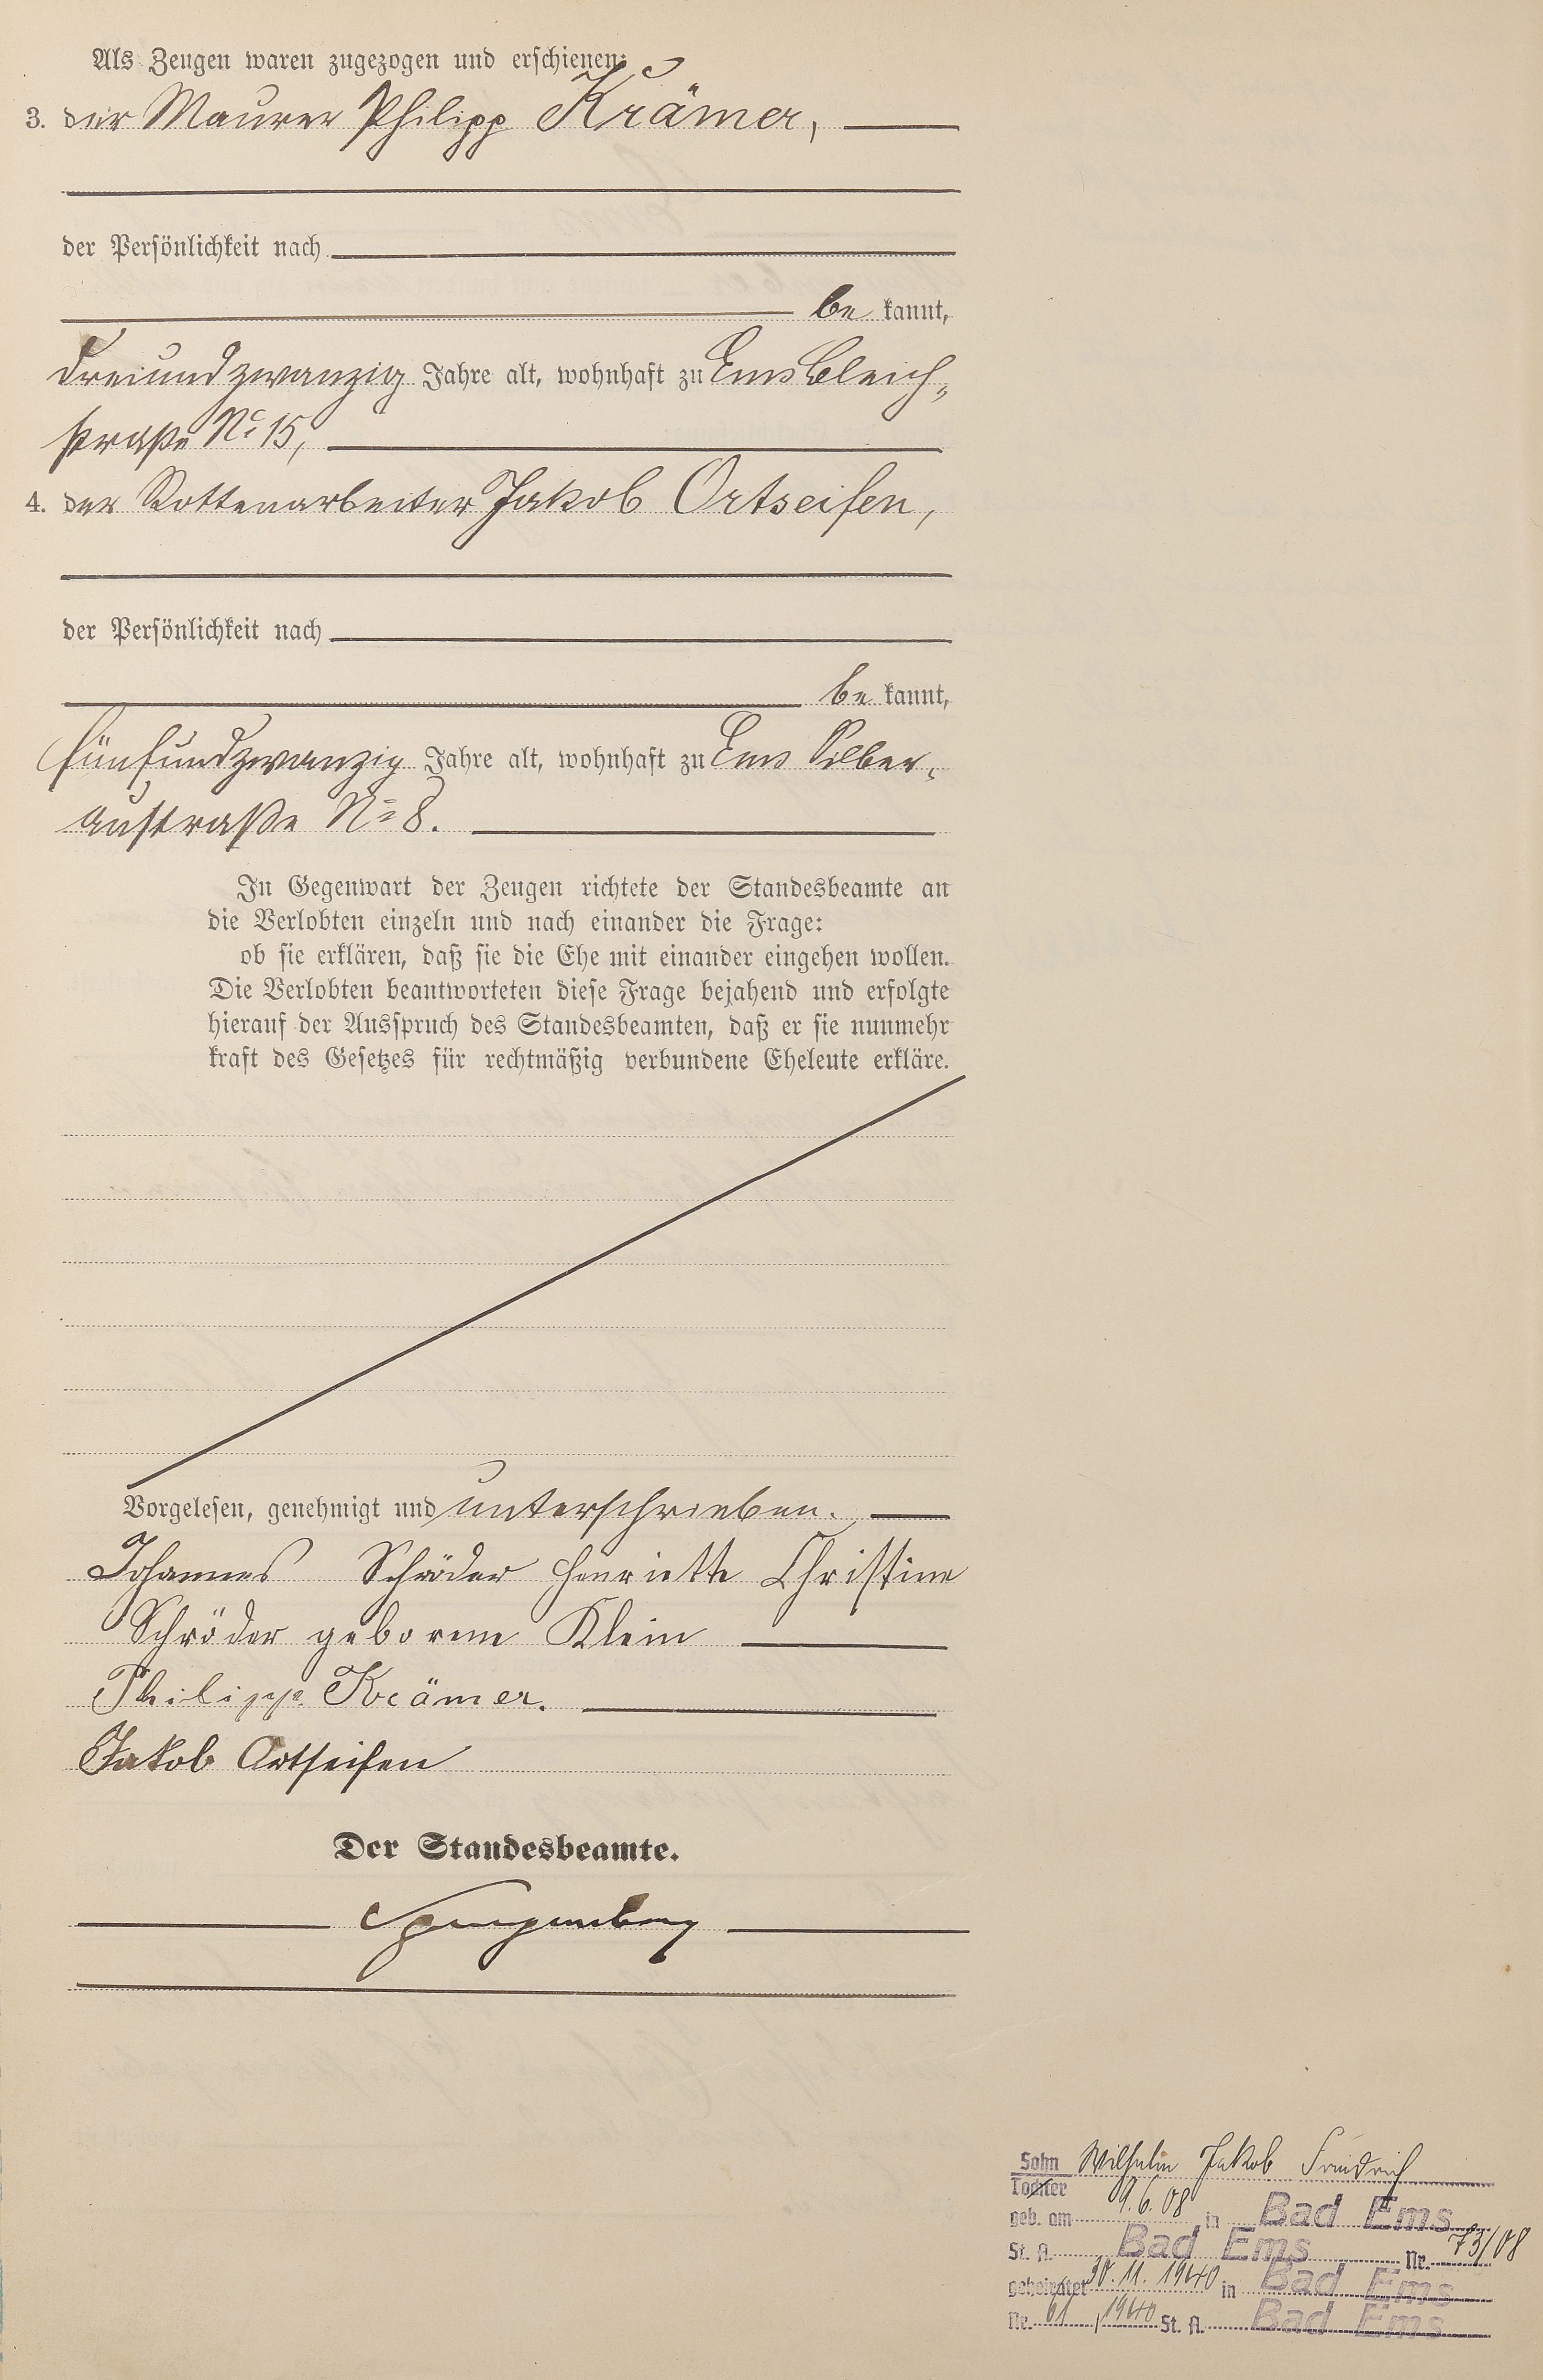 Als Zeugen waren zugezogen und erschienen:
3. der Maurer Philipp Krämer,
der Persönlichkeit nach
be kannt,
dreiundzwanzig Jahre alt, wohnhaft zu Ems Bleich-
straße No 15,
4. der Rottenarbeiter Jakob Ortseifen,
der Persönlichkeit nach
be kannt,
fünfundzwanzig Jahre alt, wohnhaft zu Ems Silber-
austraße No 8.
In Gegenwart der Zeugen richtete der Standesbeamte an
die Verlobten einzeln und nach einander die Frage:
ob sie erklären, daß sie die Ehe mit einander eingehen wollen.
Die Verlobten beantworteten diese Frage bejahend und erfolgte
hierauf der Ausspruch des Standesbeamten, daß er sie nunmehr
kraft des Gesetzes für rechtmäßig verbundene Eheleute erkläre.
Vorgelesen, genehmigt und unterschrieben.
Johannes Schröder Henriette Christine
Schröder geborene Klein
Philipp Krämer.
Jakob Ortseifen
Der Standesbeamte.
Spangenberg
Sohn Wilhelm Jakob Friedrich
Tochter
geb. am 9.6.08 in Bad Ems
St. A. Bad Ems Nr. 73/08
geheiratet 30.11.1940 in Bad Ems
Nr. 61/1940 St. A. Bad Ems